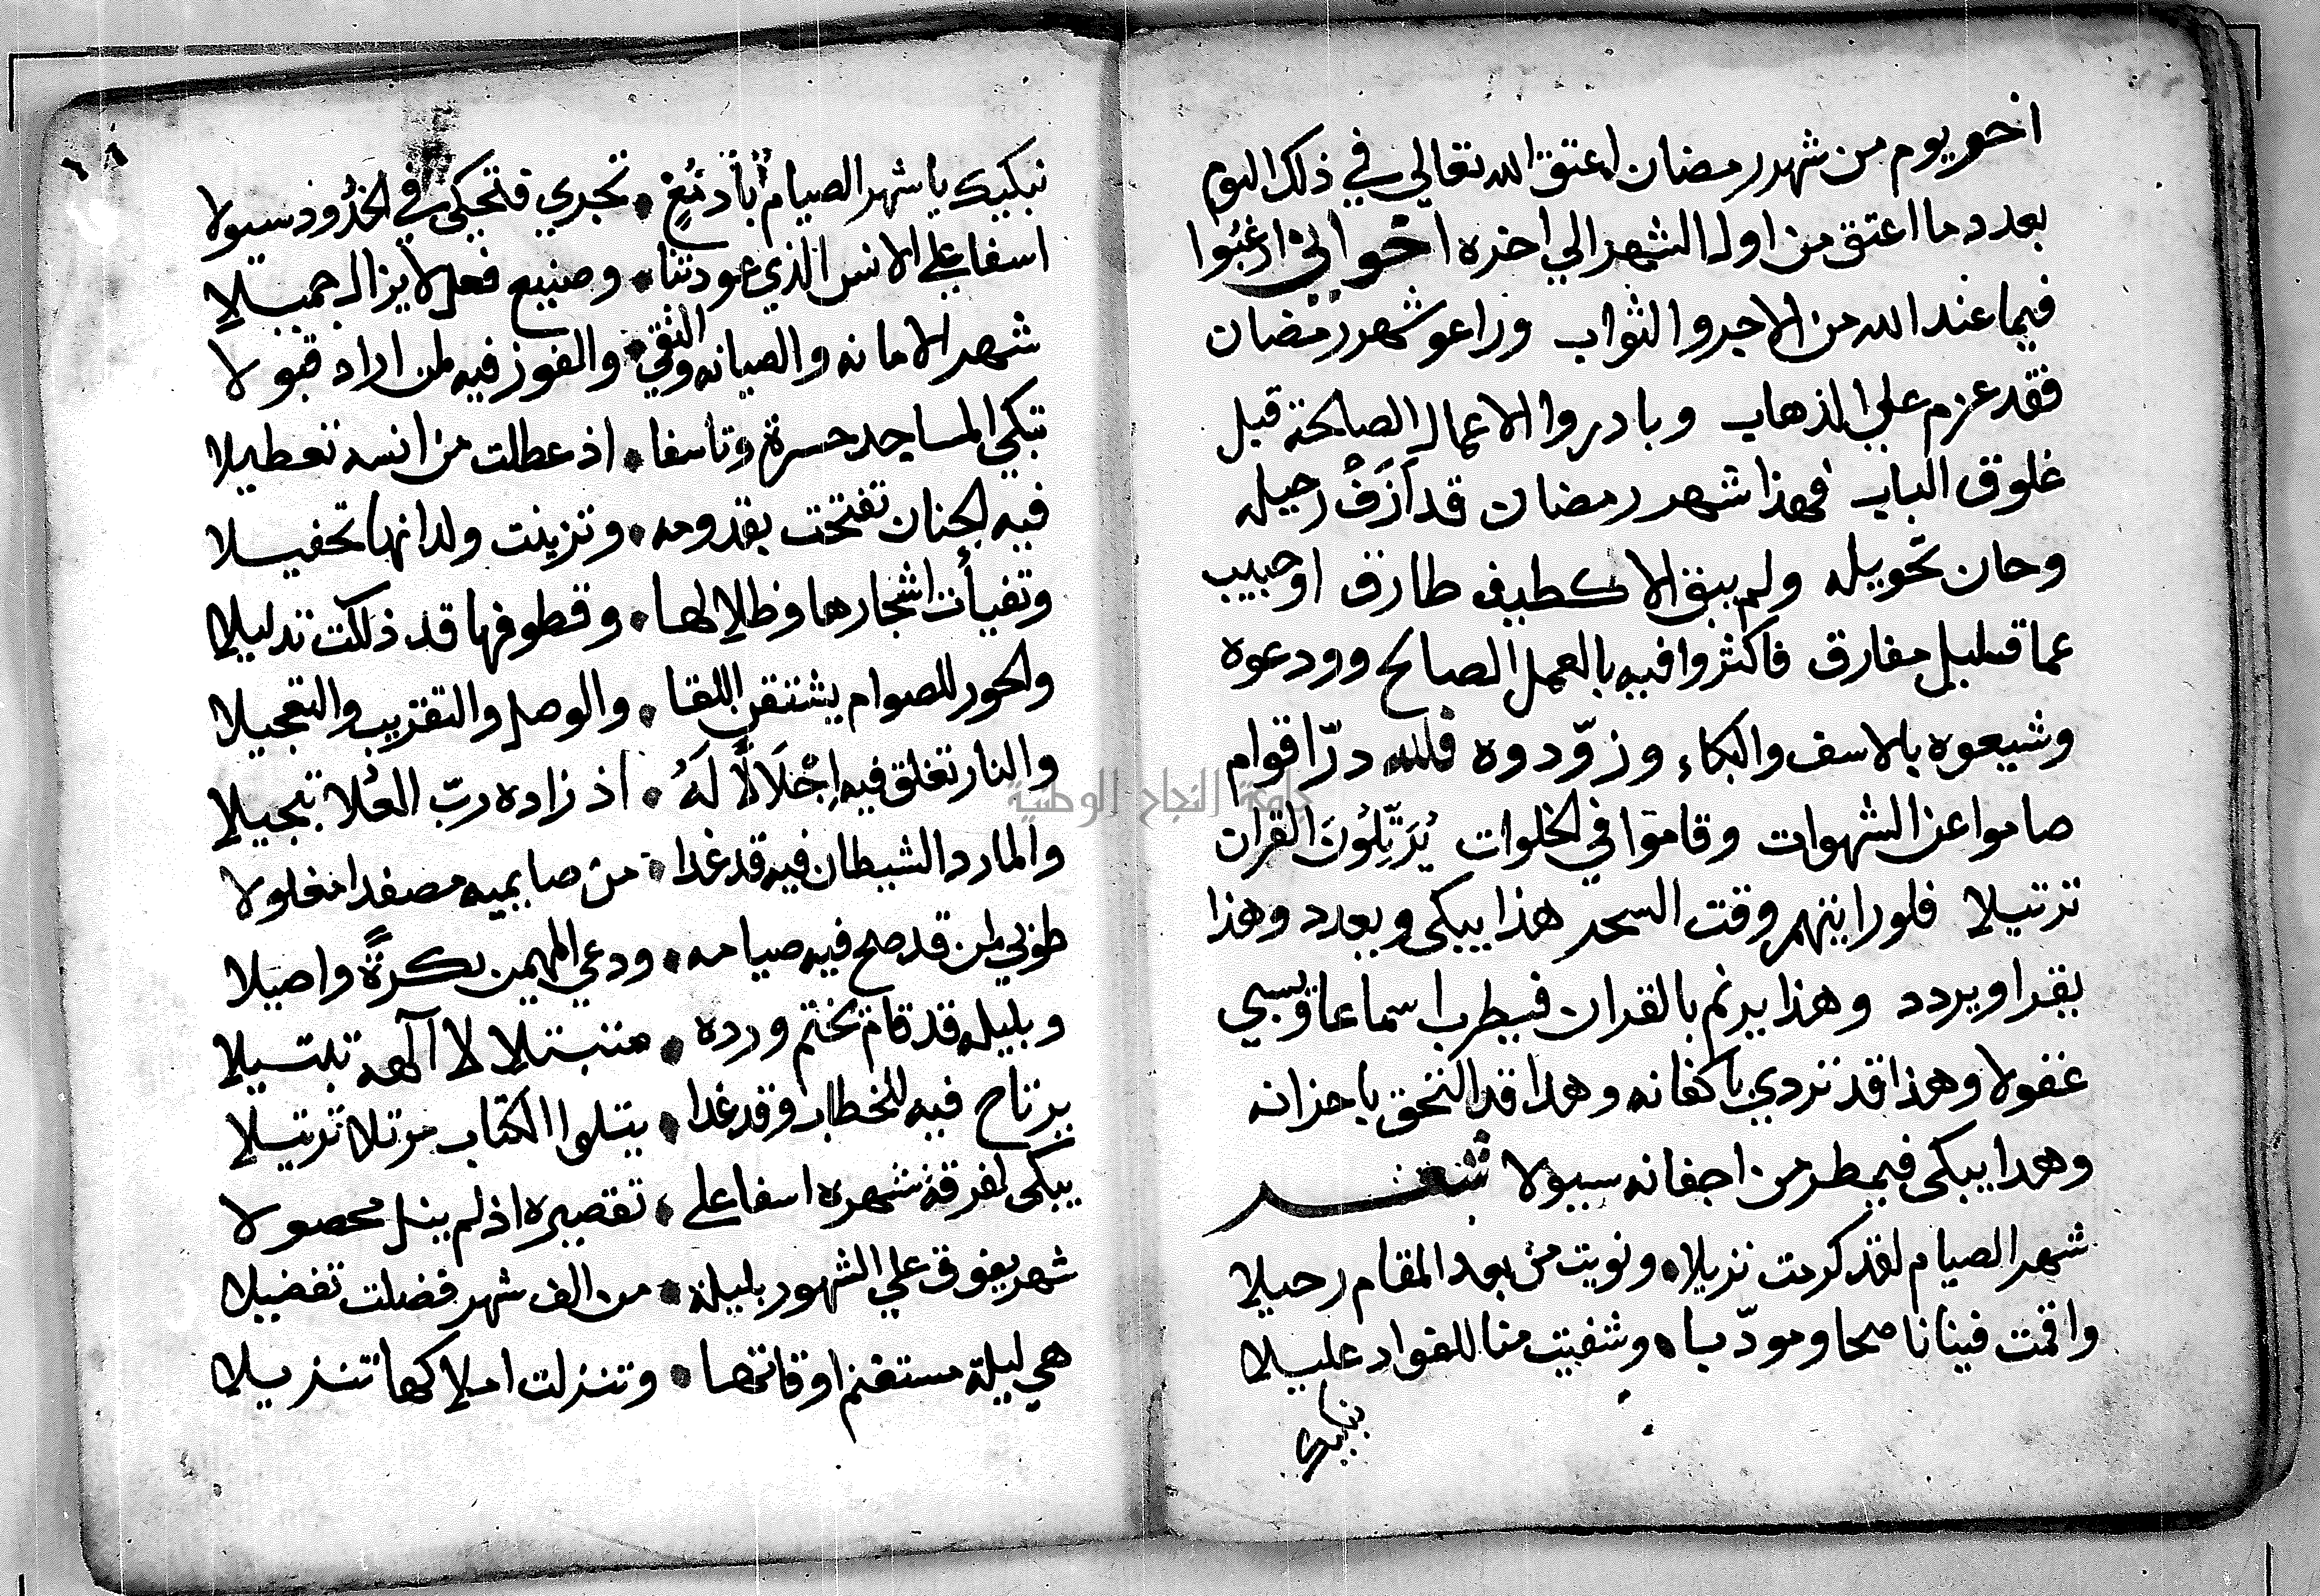 اخر يوم من شهر رمضان اعتق الله تعالي في ذلك اليوم
بعدد ما اعتق من اول الشهر الي اخره اخواني ارغبوا
فيما عند الله من الاجر والثواب وراعو شهر رمضان
فقد عزم علي الذهاب وبادروا الاعمال الصالحة قبل
غلوق الباب فهذا شهر رمضان قد اَزَفْ رحيله
وحان تحويله ولم يبق الا كطيف طارق او حبيب
عما قليل مفارق فاكثروا فيه بالعمل الصالح وودعوه
وشيعوه بالاسف والبكاء وزوّدوه فلله درّ اقوام
صاموا عن الشهوات وقاموا في الخلوات يُرَتِّلُونَ القران
ترتيلا فلو رايتهم وقت السحر هذا يبكي ويعدد وهذا
يقرا ويردد وهذا يرنم بالقران فيطرب اسماعا ويسبي
عقولا وهذا قد تردي باكفانه وهذا قد التحق باحزانه
وهذا يبكي فيمطر من اجفانه سيولا شعر
شهر الصيام لقد كرمت نزيلا ونويت من بعد المقام رحيلا
واقمت فينا ناصحا ومودّبا وشفيت منا للفواد عليلا
نبكيك
نبكيك يا شهر الصيام بأدمُعٍ تجري فتحكي في الخُدُود سيولا
اسفا علي الانس الذي عودتنا وصنيع فعل لا يزال جميلا
شهر الامانه والصيانه والتقي والفوز فيه لمن اراد قبولا
تبكي المساجد حسرة وتاسفا اذ عطلت من انسه تعطيلا
فيه الجنان تفتحت بقدومه وتزينت ولدانها تحفيلا
وتفيأت اشجارها وظلالها وقطوفها قد ذللت تدليلا
والحور للصوام يشتقن اللقا والوصل والتقريب والتعجيلا
والنار تغلق فيه اِجْلَالًا لَهُ اذ زاده ربّ العُلا تبجيلا
والمارد الشيطان فيه قد غدا من صايميه مصفدا مغلولا
طوبي لمن قد صح فيه صيامه ودعي المهيمن بكرةً واصيلا
وبليله قد قام يختم ورده متبتلا لا آلهه تبتيلا
يرتاح فيه للخطاب وقد غدا يتلوا الكتاب مرتلا ترتيلا
يبكي لفرقة شهره اسفا علي تقصيره اذ لم ينل محصولا
شهر يفوق علي الشهور بليلة من الف شهر فضلت تفضيلا
هي ليلة مستغنم اوقاتها وتنزلت املاكها تنزيلا
جامعة النجاح الوطنية